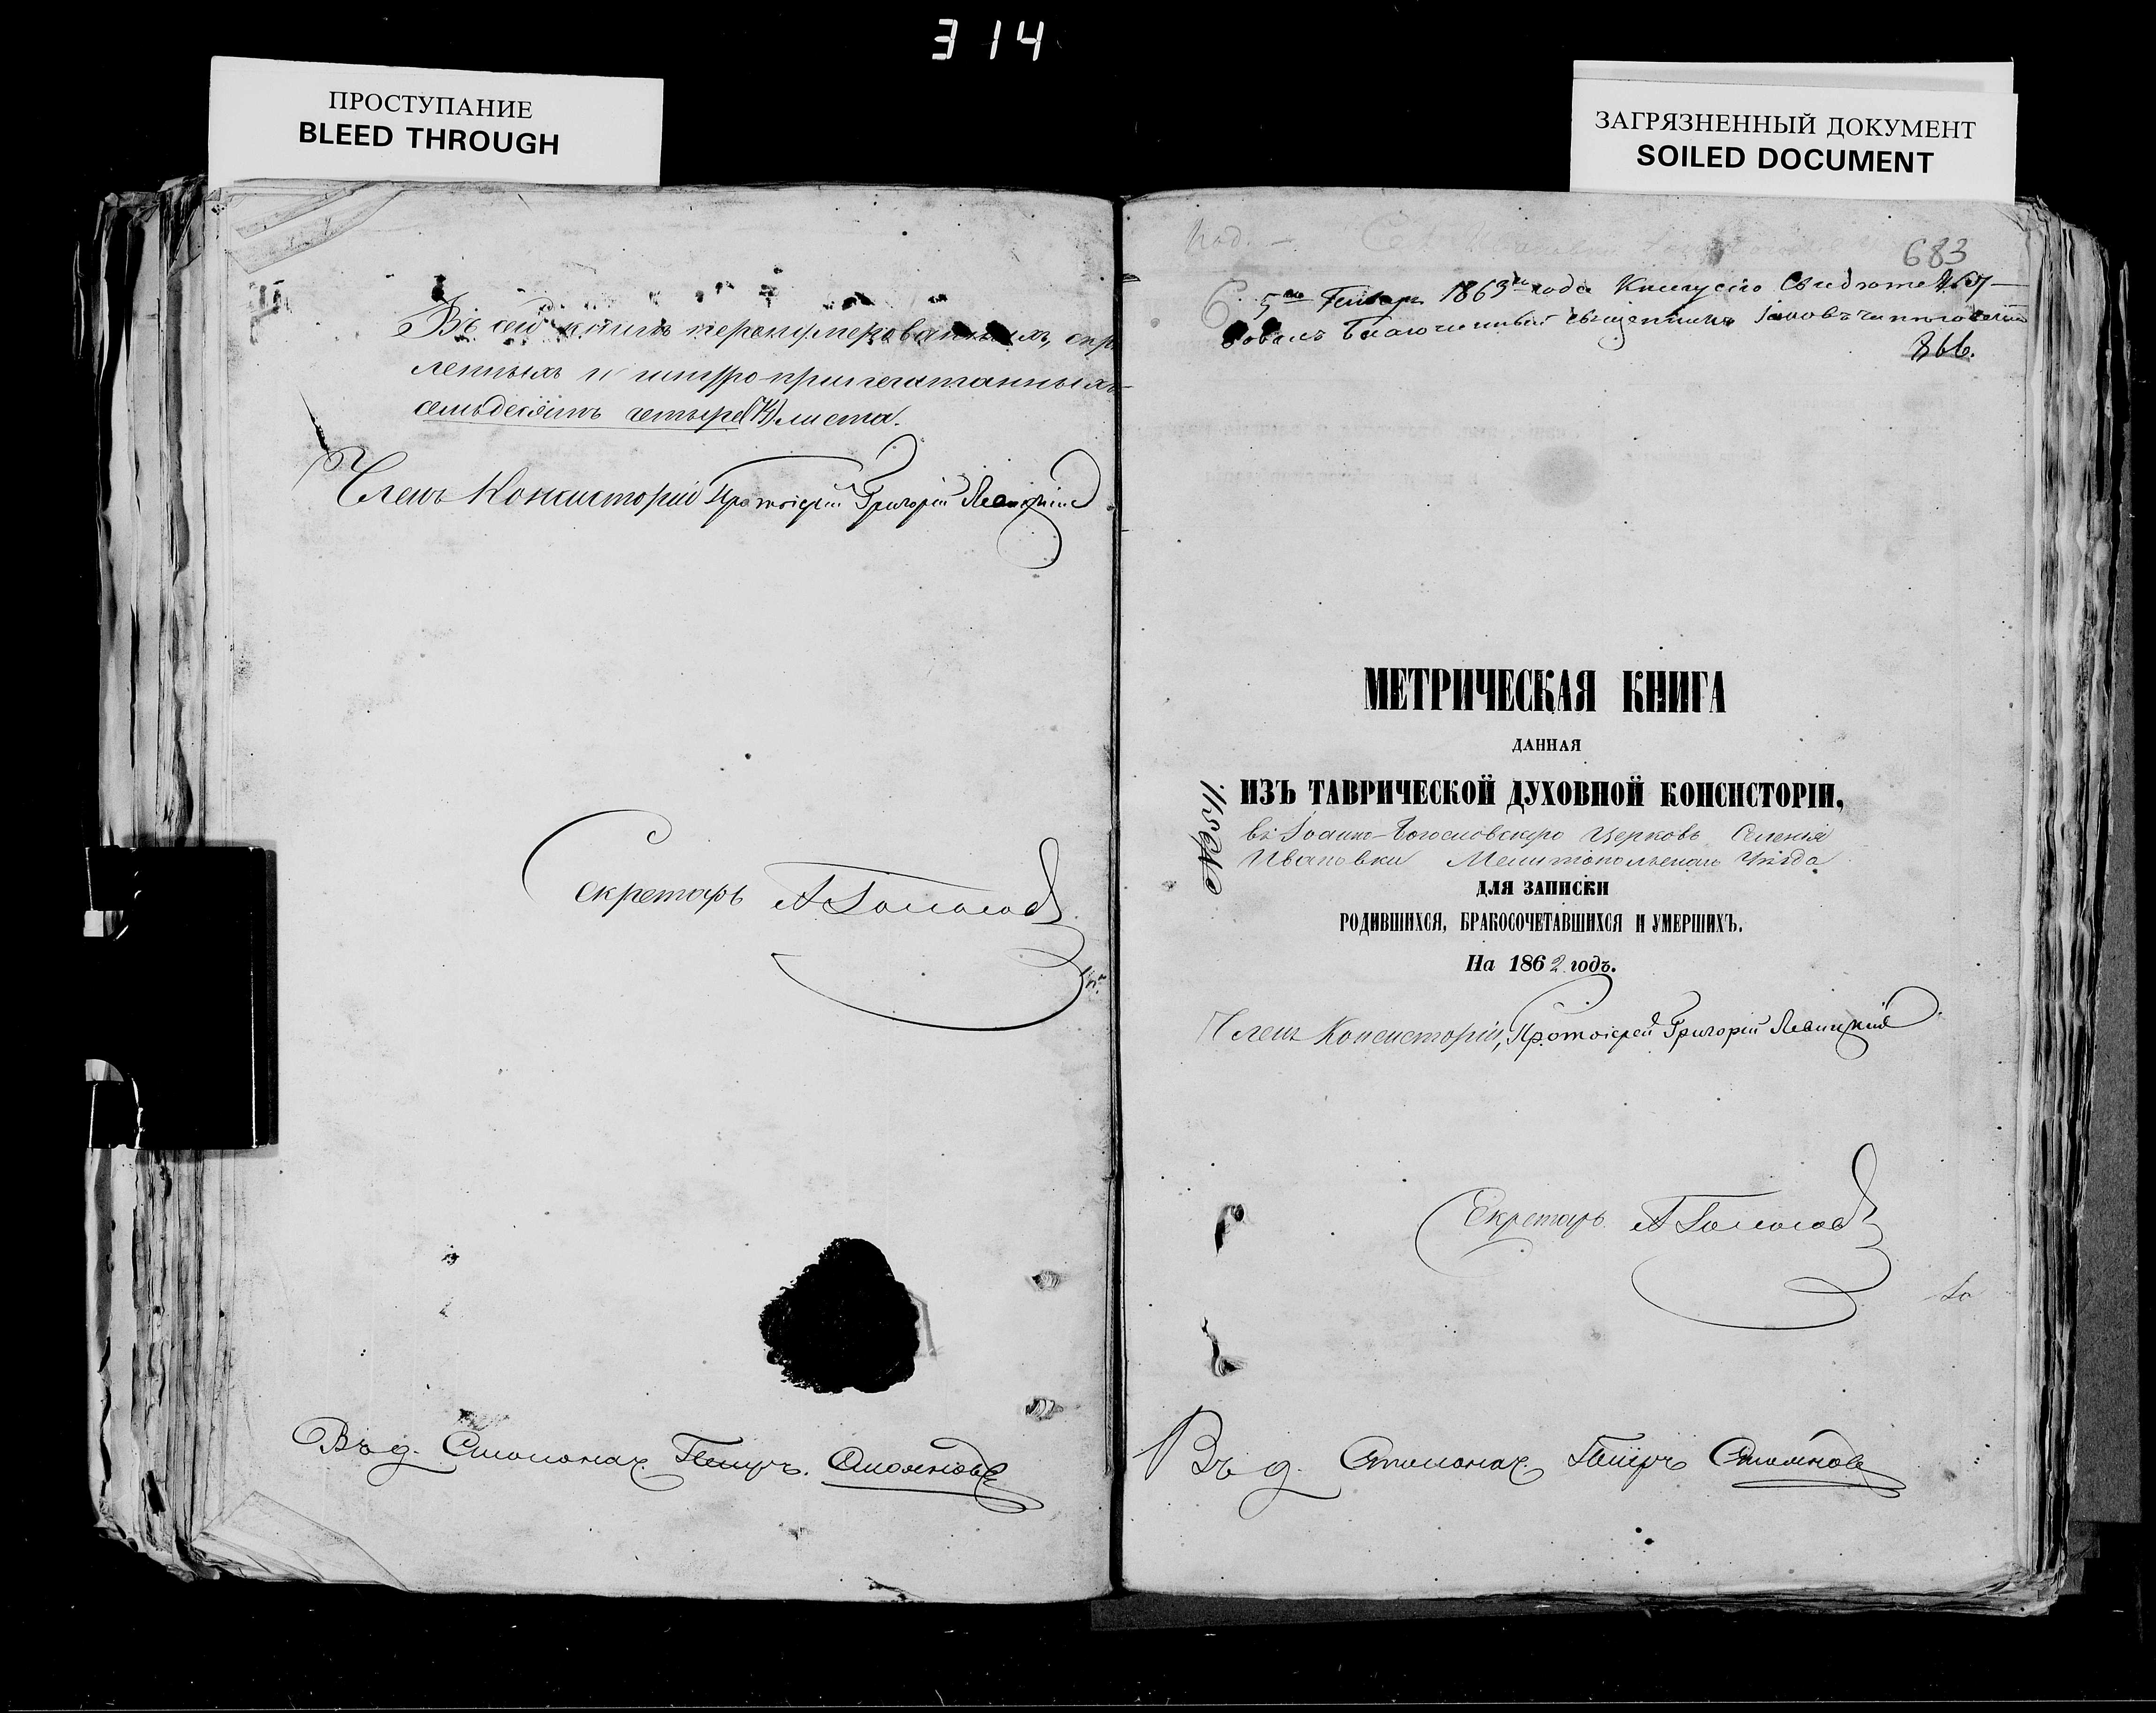 314
ПРОСТУПАНИЕ
BLEED THROUGH
ЗАГРЯЗНЕННЫЙ ДОКУМЕНТ
SOILED DOCUMENT
Въ сей книгѣ перенумерованныхъ, скрѣ
пленныхъ и шнуро-припечатанныхъ
семьдесятъ четыре (74) листа.
Членъ Консисторіи Протоіерей Григорій Левицкій
Секретарь А.
Въ д. Столонач. Петръ
683
5го Генваря 1863го года Книгу сію Свидѣтель-
Благочинный священникъ Іаковъ
МЕТРИЧЕСКАЯ КНИГА
ДАННАЯ
ИЗЪ ТАВРИЧЕСКОЙ ДУХОВНОЙ КОНСИСТОРІИ,
въ Іоанно-Богословскую Церковь Селенія
Ивановки Мелитопольскаго Уѣзда
ДЛЯ ЗАПИСКИ
РОДИВШИХСЯ, БРАКОСОЧЕТАВШИХСЯ И УМЕРШИХЪ.
На 1862 годъ.
Членъ Консисторіи, Протоіерей Григорій Левицкій
Секретарь А.
Въ д. Столонач. Петръ